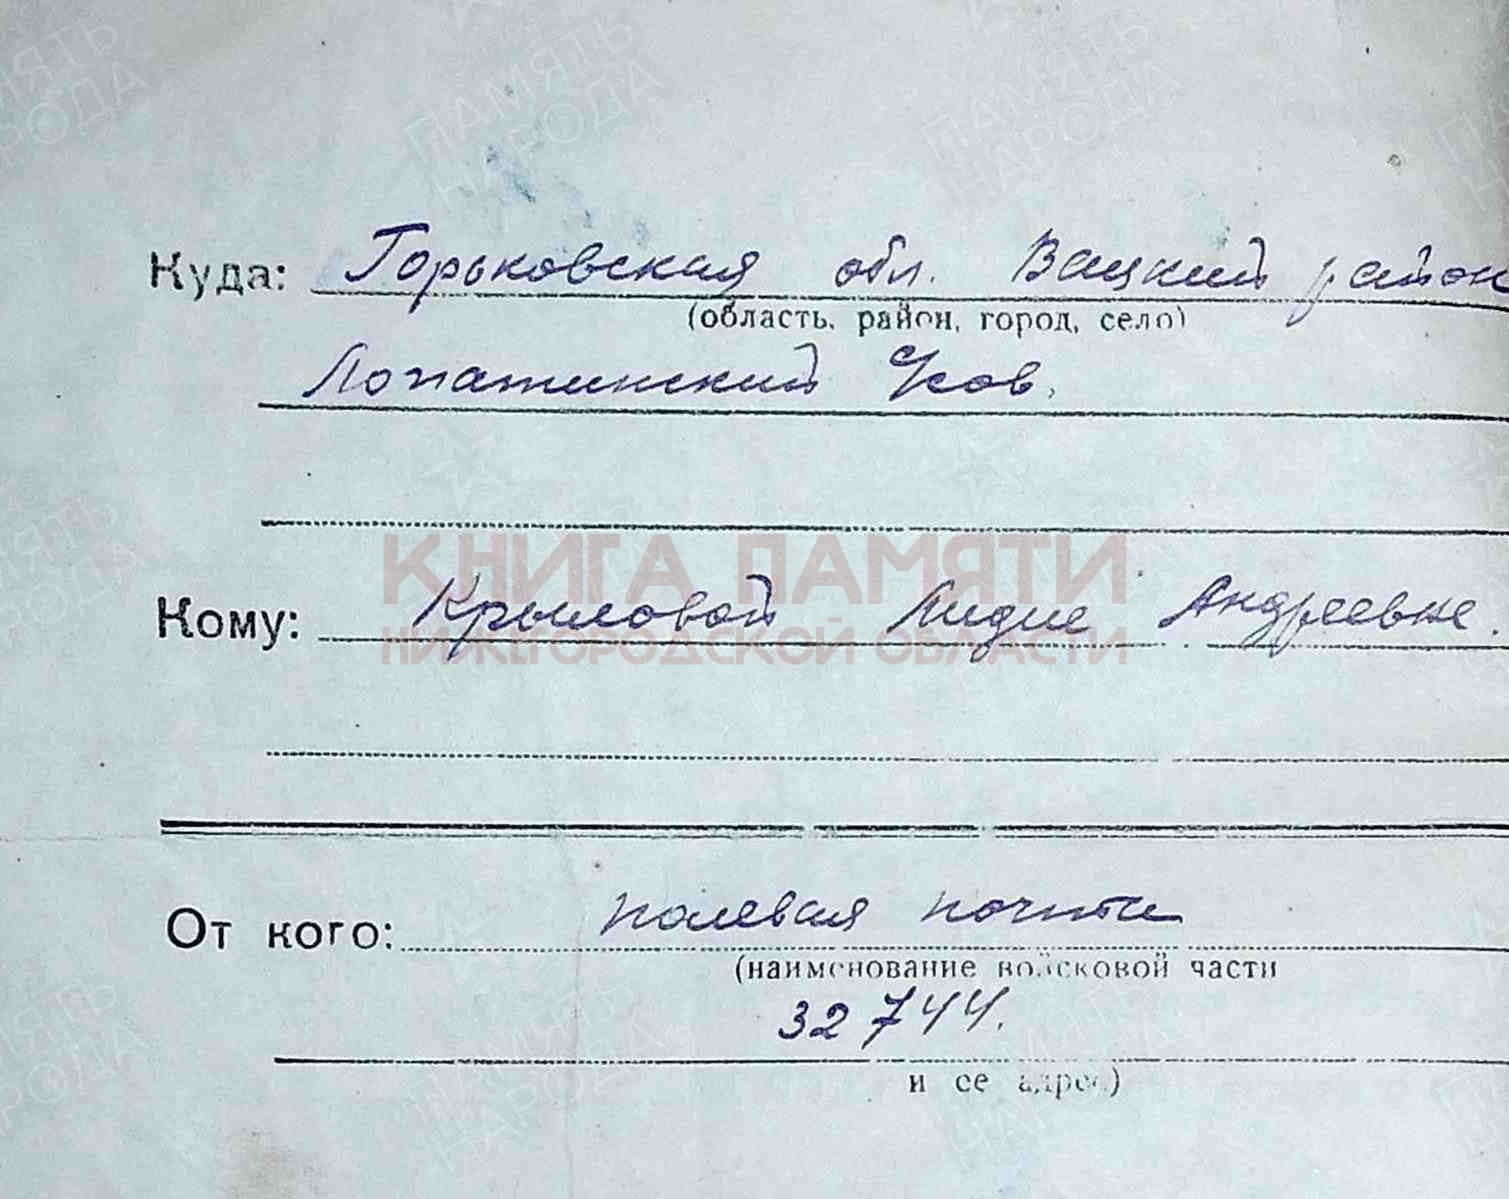 Куда: Горьковская обл. Вацкий район
(область, район, город, село)
Лопатинский с/сов.
КНИГА ПАМЯТИ
Кому: Крыловой Лидие Андреевне.
НИЖЕГОРОДСКОЙ ОБЛАСТИ
От кого: полевая почта
(наименование войсковой части
32744.
и ее адрес)
ПАМЯТЬ
НАРОДА